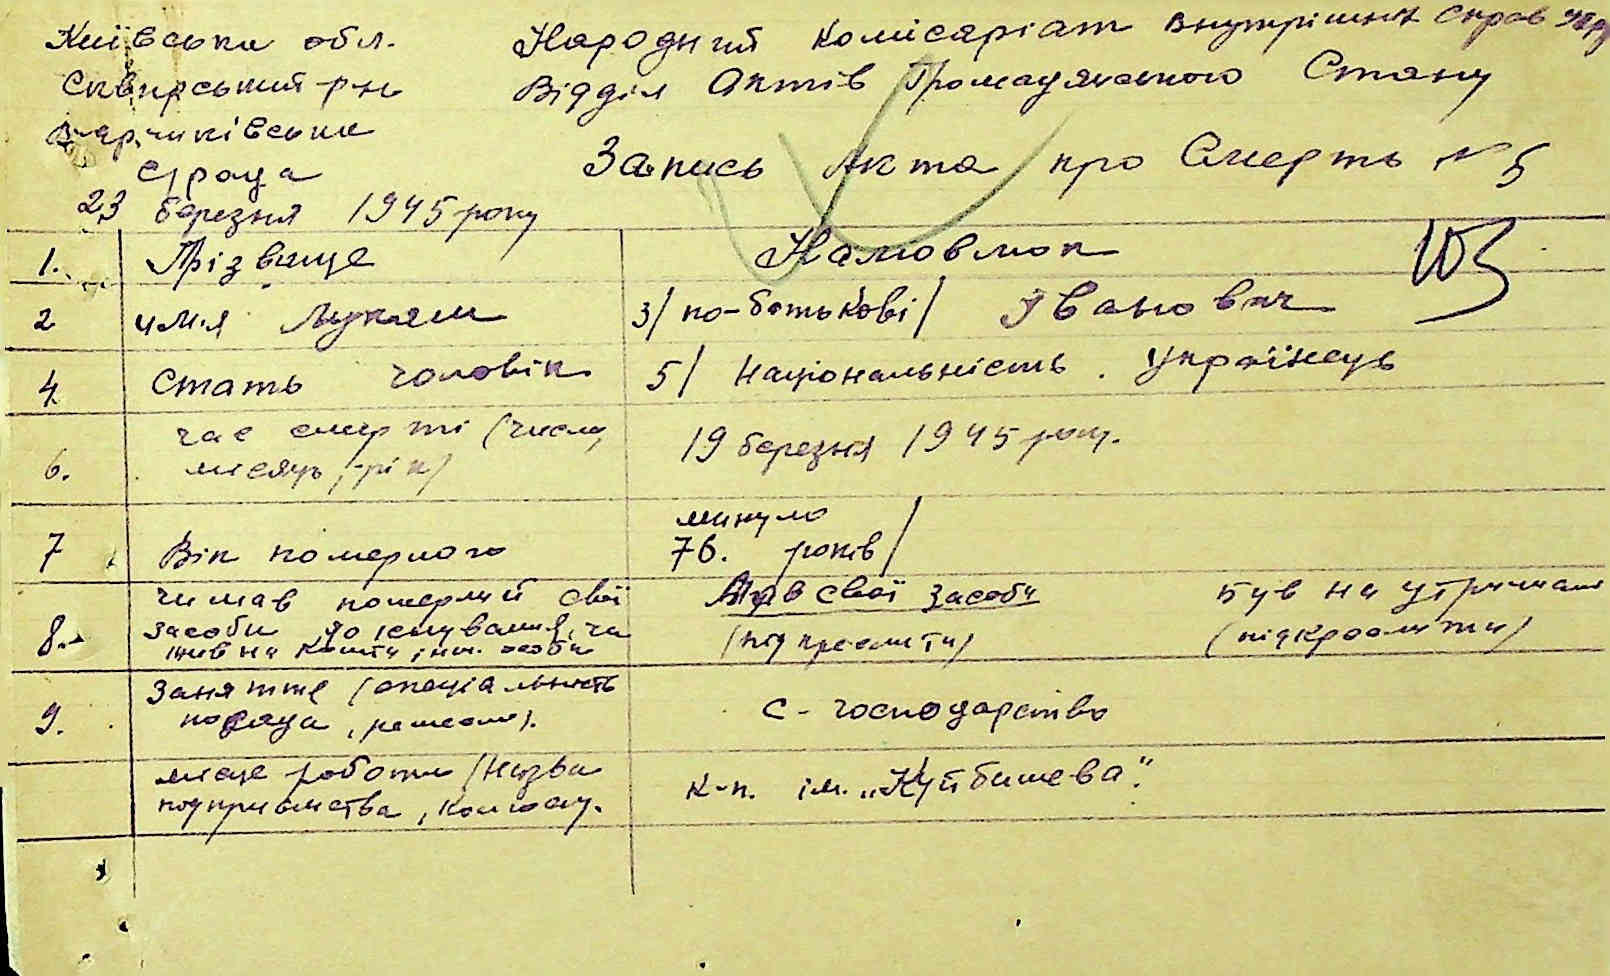 Київська обл.
Народний Комісаріат Внутрішніх Справ УРСР
Сквирський р-н
Відділ Актів Громадянського Стану
Запись Акта про Смерть № 5
С/рада
23 березня 1945 року
1. Прізвище
2 им'я Лукян 3/ по-батькові/ Іванович
4 Стать чоловік 5/ Національність. Українець
6. час смерті (число, місяць, рік) 19 березня 1945 року.
7 Вік померлого минуло 76. років/
8. чи мав померлий свої засоби до існування, чи жив на кошти інш. особи
Мав свої засоби (підкреслити)
Був на утриманні (підкреслити)
9. Заняття (спеціальність посада, ремесло).
С-господарство
місце роботи (Назва підприємства, колгоспу.
к-п. ім. „Куйбишева".